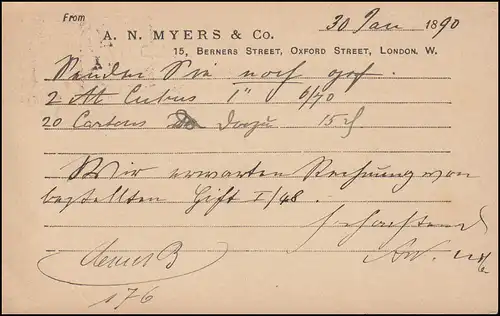 From
A. N. MYERS & Co.
30 Jan 1890
15, BERNERS STREET, OXFORD STREET, LONDON. W.
Senden Sie noch gef.
2 At Cubus 1" 6/70
20 Cartons dazu 15
Wir erwarten Rechnung von
bestellten Gift I/48.
176